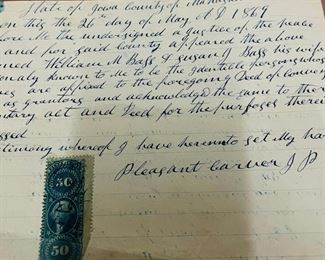 State of Iowa County of Mahaska
on this the 26th day of May A D 1869
fore Me the undersigned a Justice of the peace
and for said County appeared the above
med William M Bass & Susan J Bass his wife
sonaly known to Me to be the identicle persons whose
mes are afixed to the foregoing Deed of Convey
as grantors and acknowledged the same to their
untary act and Deed for the purposes therein
ssed
timony whereof I have hereunto set My ha
Pleasant Carver J P
50
50